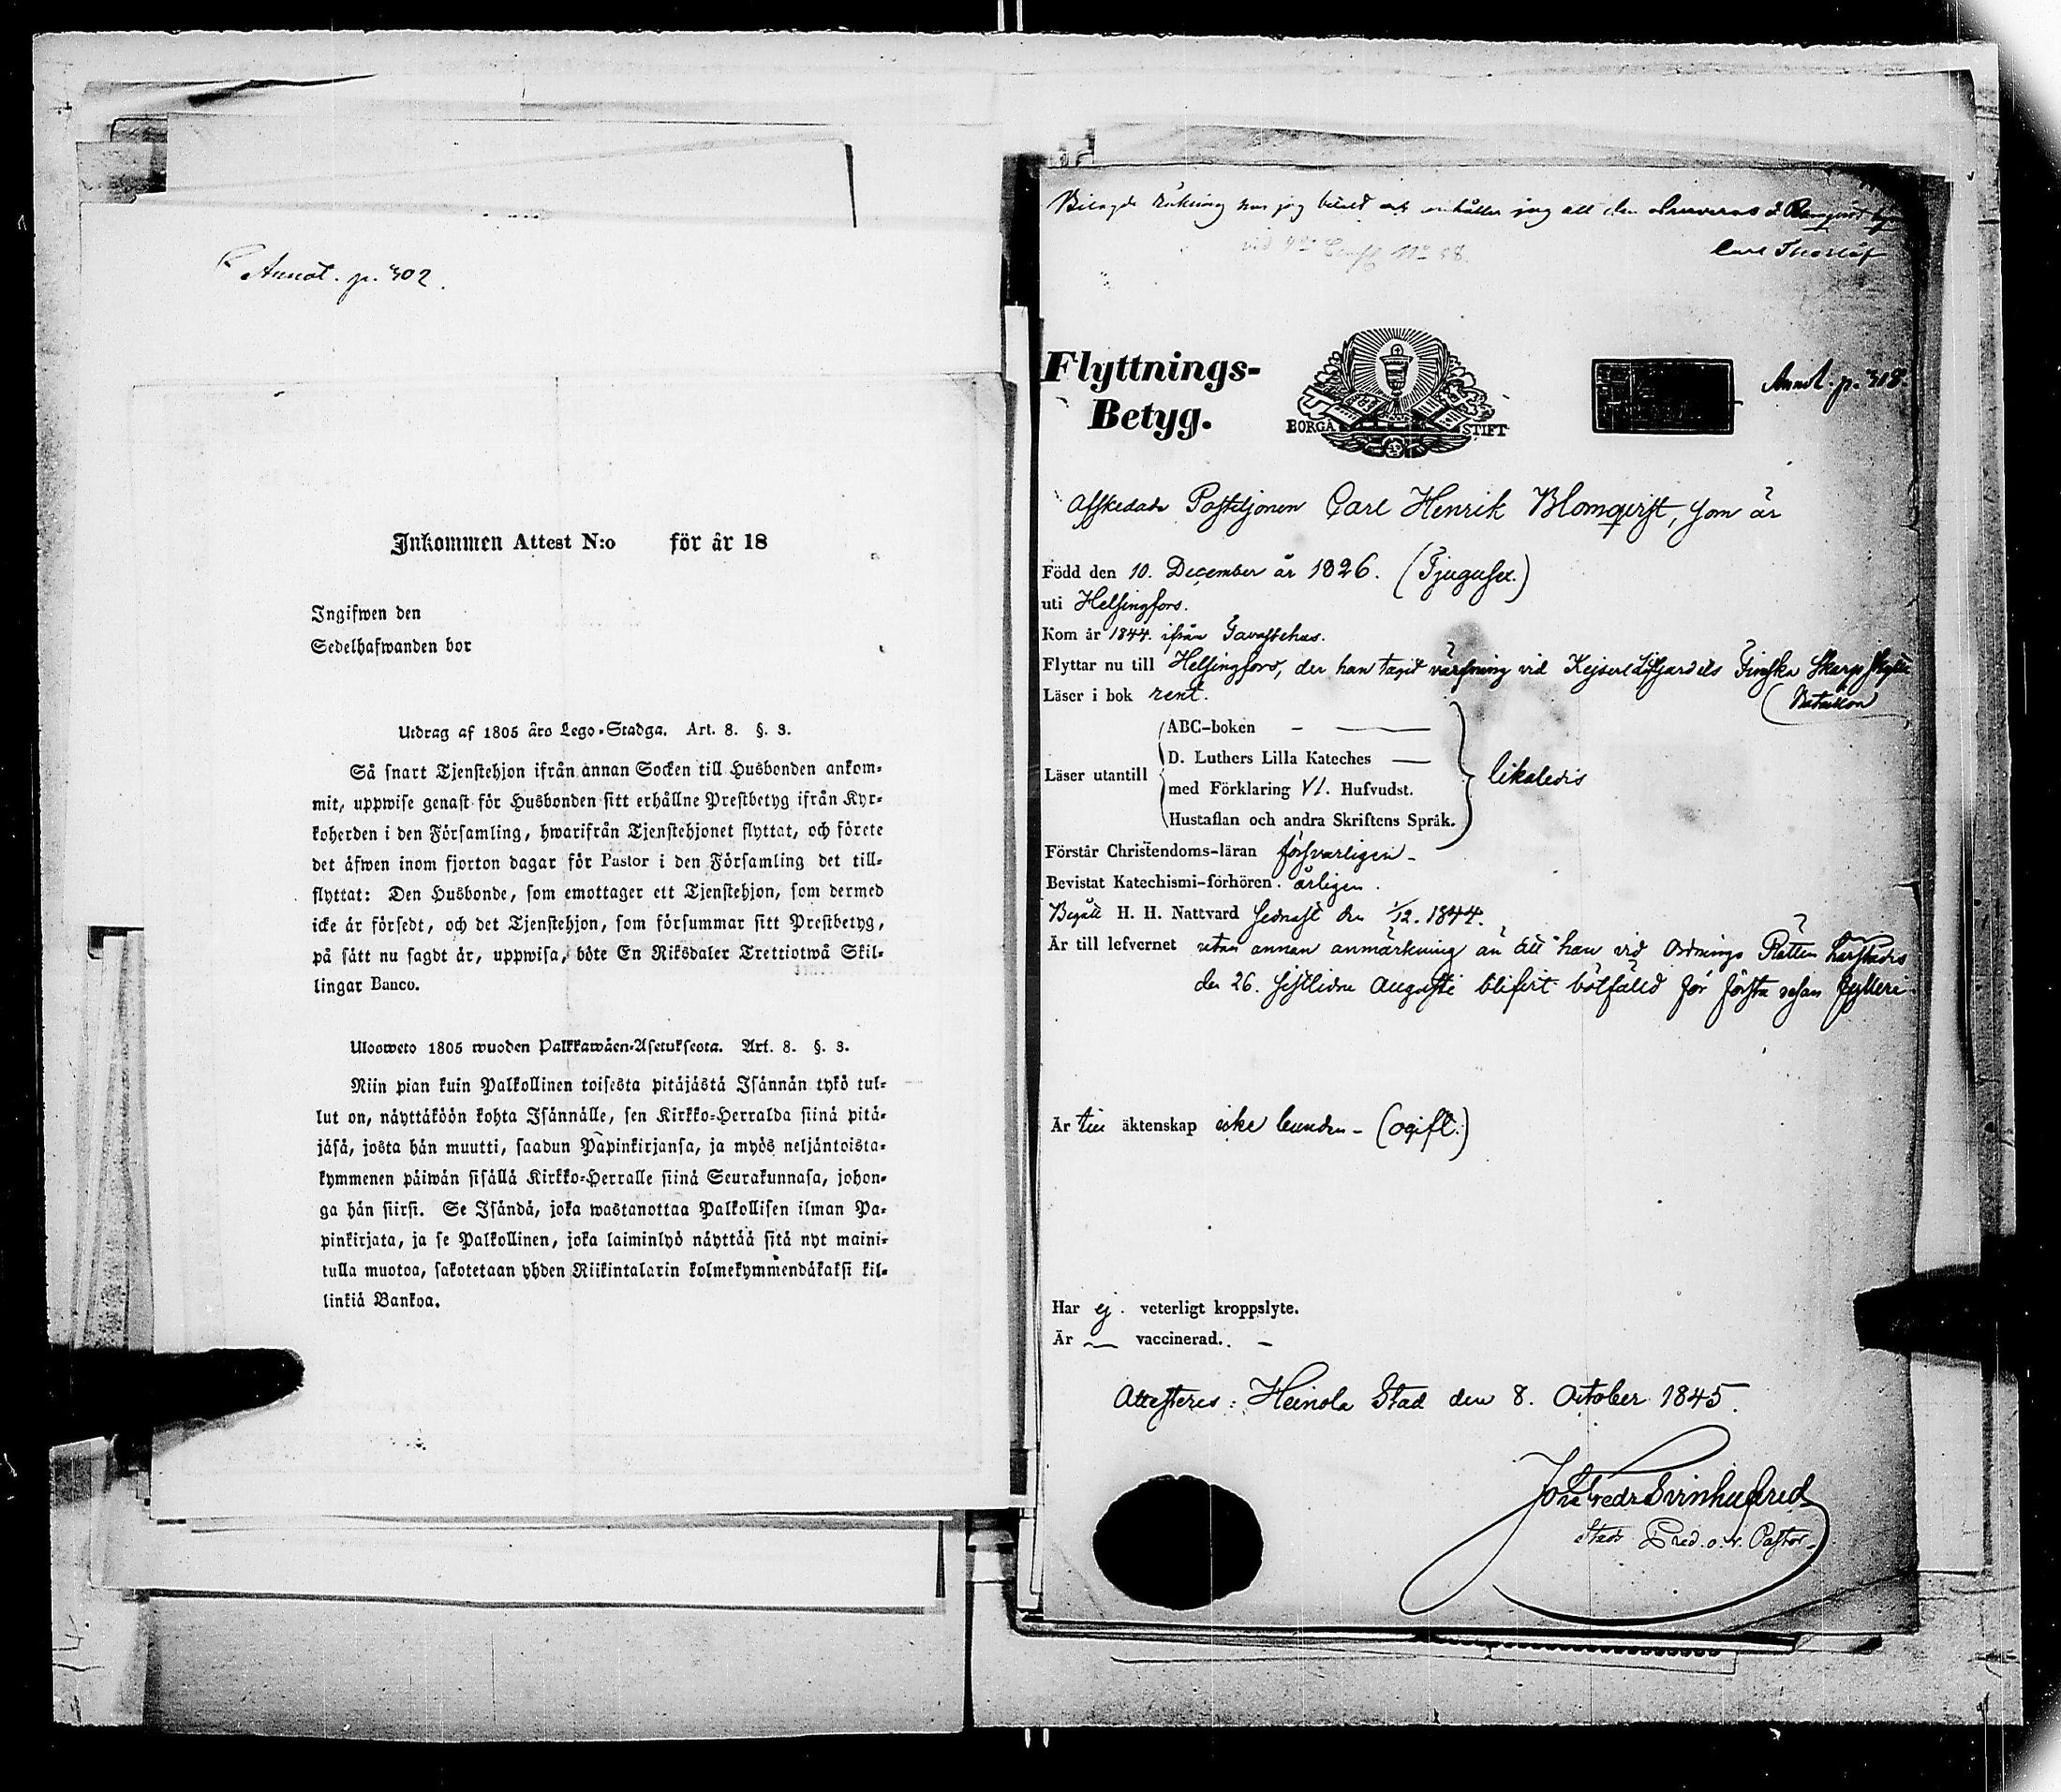 Annot. p. 302.
Inkommen Attest N:o för år 18
Ingifwen den
Sedelhafwanden bor
Utdrag af 1805 års Lego-Stadga. Art. 8. §. 3.
Så snart Tjenstehjon ifrån annan Socken till Husbonden ankom-
mit, uppwise genast för Husbonden sitt erhållne Prestbetyg ifrån Kyr-
koherden i den Församling, hwarifrån Tjenstehjonet flyttat, och förete
det äfwen inom fjorton dagar för Pastor i den Församling det till-
flyttat: Den Husbonde, som emottager ett Tjenstehjon, som dermed
icke är försedt, och det Tjenstehjon, som försummar sitt Prestbetyg,
på sätt nu sagdt är, uppwisa, böte En Riksdaler Trettiotwå Skil-
lingar Banco.
Ulosweto 1805 wuoden Palkkawäen-Asetuksesta. Art. 8. §. 3.
Niin pian kuin Palkollinen toisesta pitäjästä Isännän tykö tul-
lut on, näyttäköön kohta Isännälle, sen Kirkko-Herralda siinä pitä-
jäsä, josta hän muutti, saadun Papinkirjansa, ja myös neljäntoista-
kymmenen päiwän sisällä Kirkko-Herralle siinä Seurakunnasa, johon-
ga hän siirsi. Se Isändä, joka wastanottaa Palkollisen ilman Pa-
pinkirjata, ja se Palkollinen, joka laiminlyö näyttää sitä nyt maini-
tulla muotoa, sakotetaan yhden Riikintalarin kolmekymmendäkaksi kil-
linkiä Bankoa.
jag att den
Carl
Flyttnings-
Betyg.
BORGÅ STIFT
Annot. p. 318.
Afskedade Postiljonen Carl Henrik Blomqvist, som är
Född den 10. December år 1826. (Tjugusex.)
uti Helsingfors.
Kom år 1844. ifrån Tavastehus.
Flyttar nu till Helsingfors, der han tagit värfning vid Kejserl. Lifgardets Finska Skarpskytte
(Bataillon
Läser i bok rent.
Läser utantill
ABC-boken
D. Luthers Lilla Kateches
med Förklaring VI. Hufvudst.
Hustaflan och andra Skriftens Språk.
likaledes
Förstår Christendoms-läran försvarligen
Bevistat Katechismi-förhören. årligen.
Begått H. H. Nattvard sednast den 1/12. 1844.
Är till lefvernet utan annan anmärkning än att han vid Ordnings Rätten härstädes
den 26. sistlidne Augusti blifvit bötfäld för första resan fylleri.
Är till äktenskap icke bunden - (ogift.)
Har ej. veterligt kroppslyte.
Är vaccinerad.
Attesteras: Heinola Stad den 8. October 1845.
Svinhufvud
Stads Pred. o. v. Pastor.